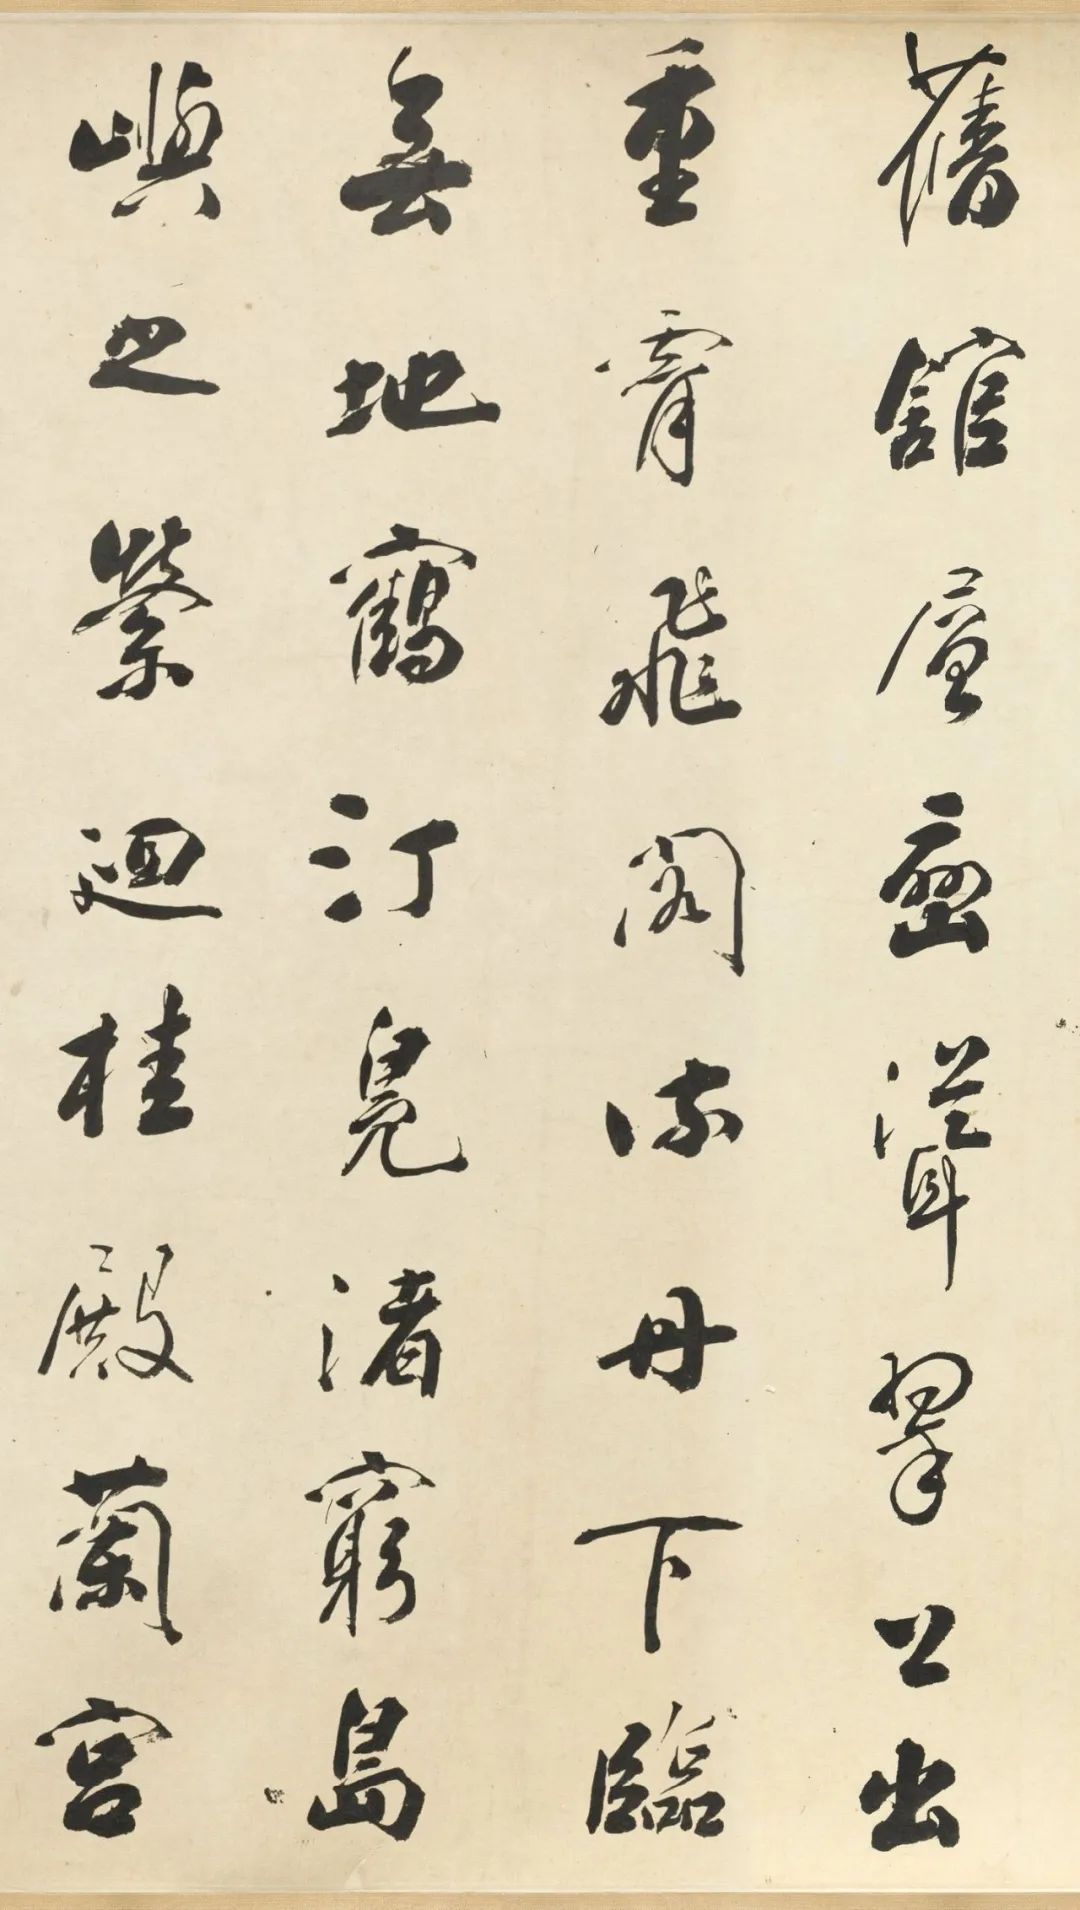 舊館層巒聳翠上出
重霄飛閣流丹下臨
無地鶴汀鳧渚窮島
嶼之縈迴桂殿蘭宮